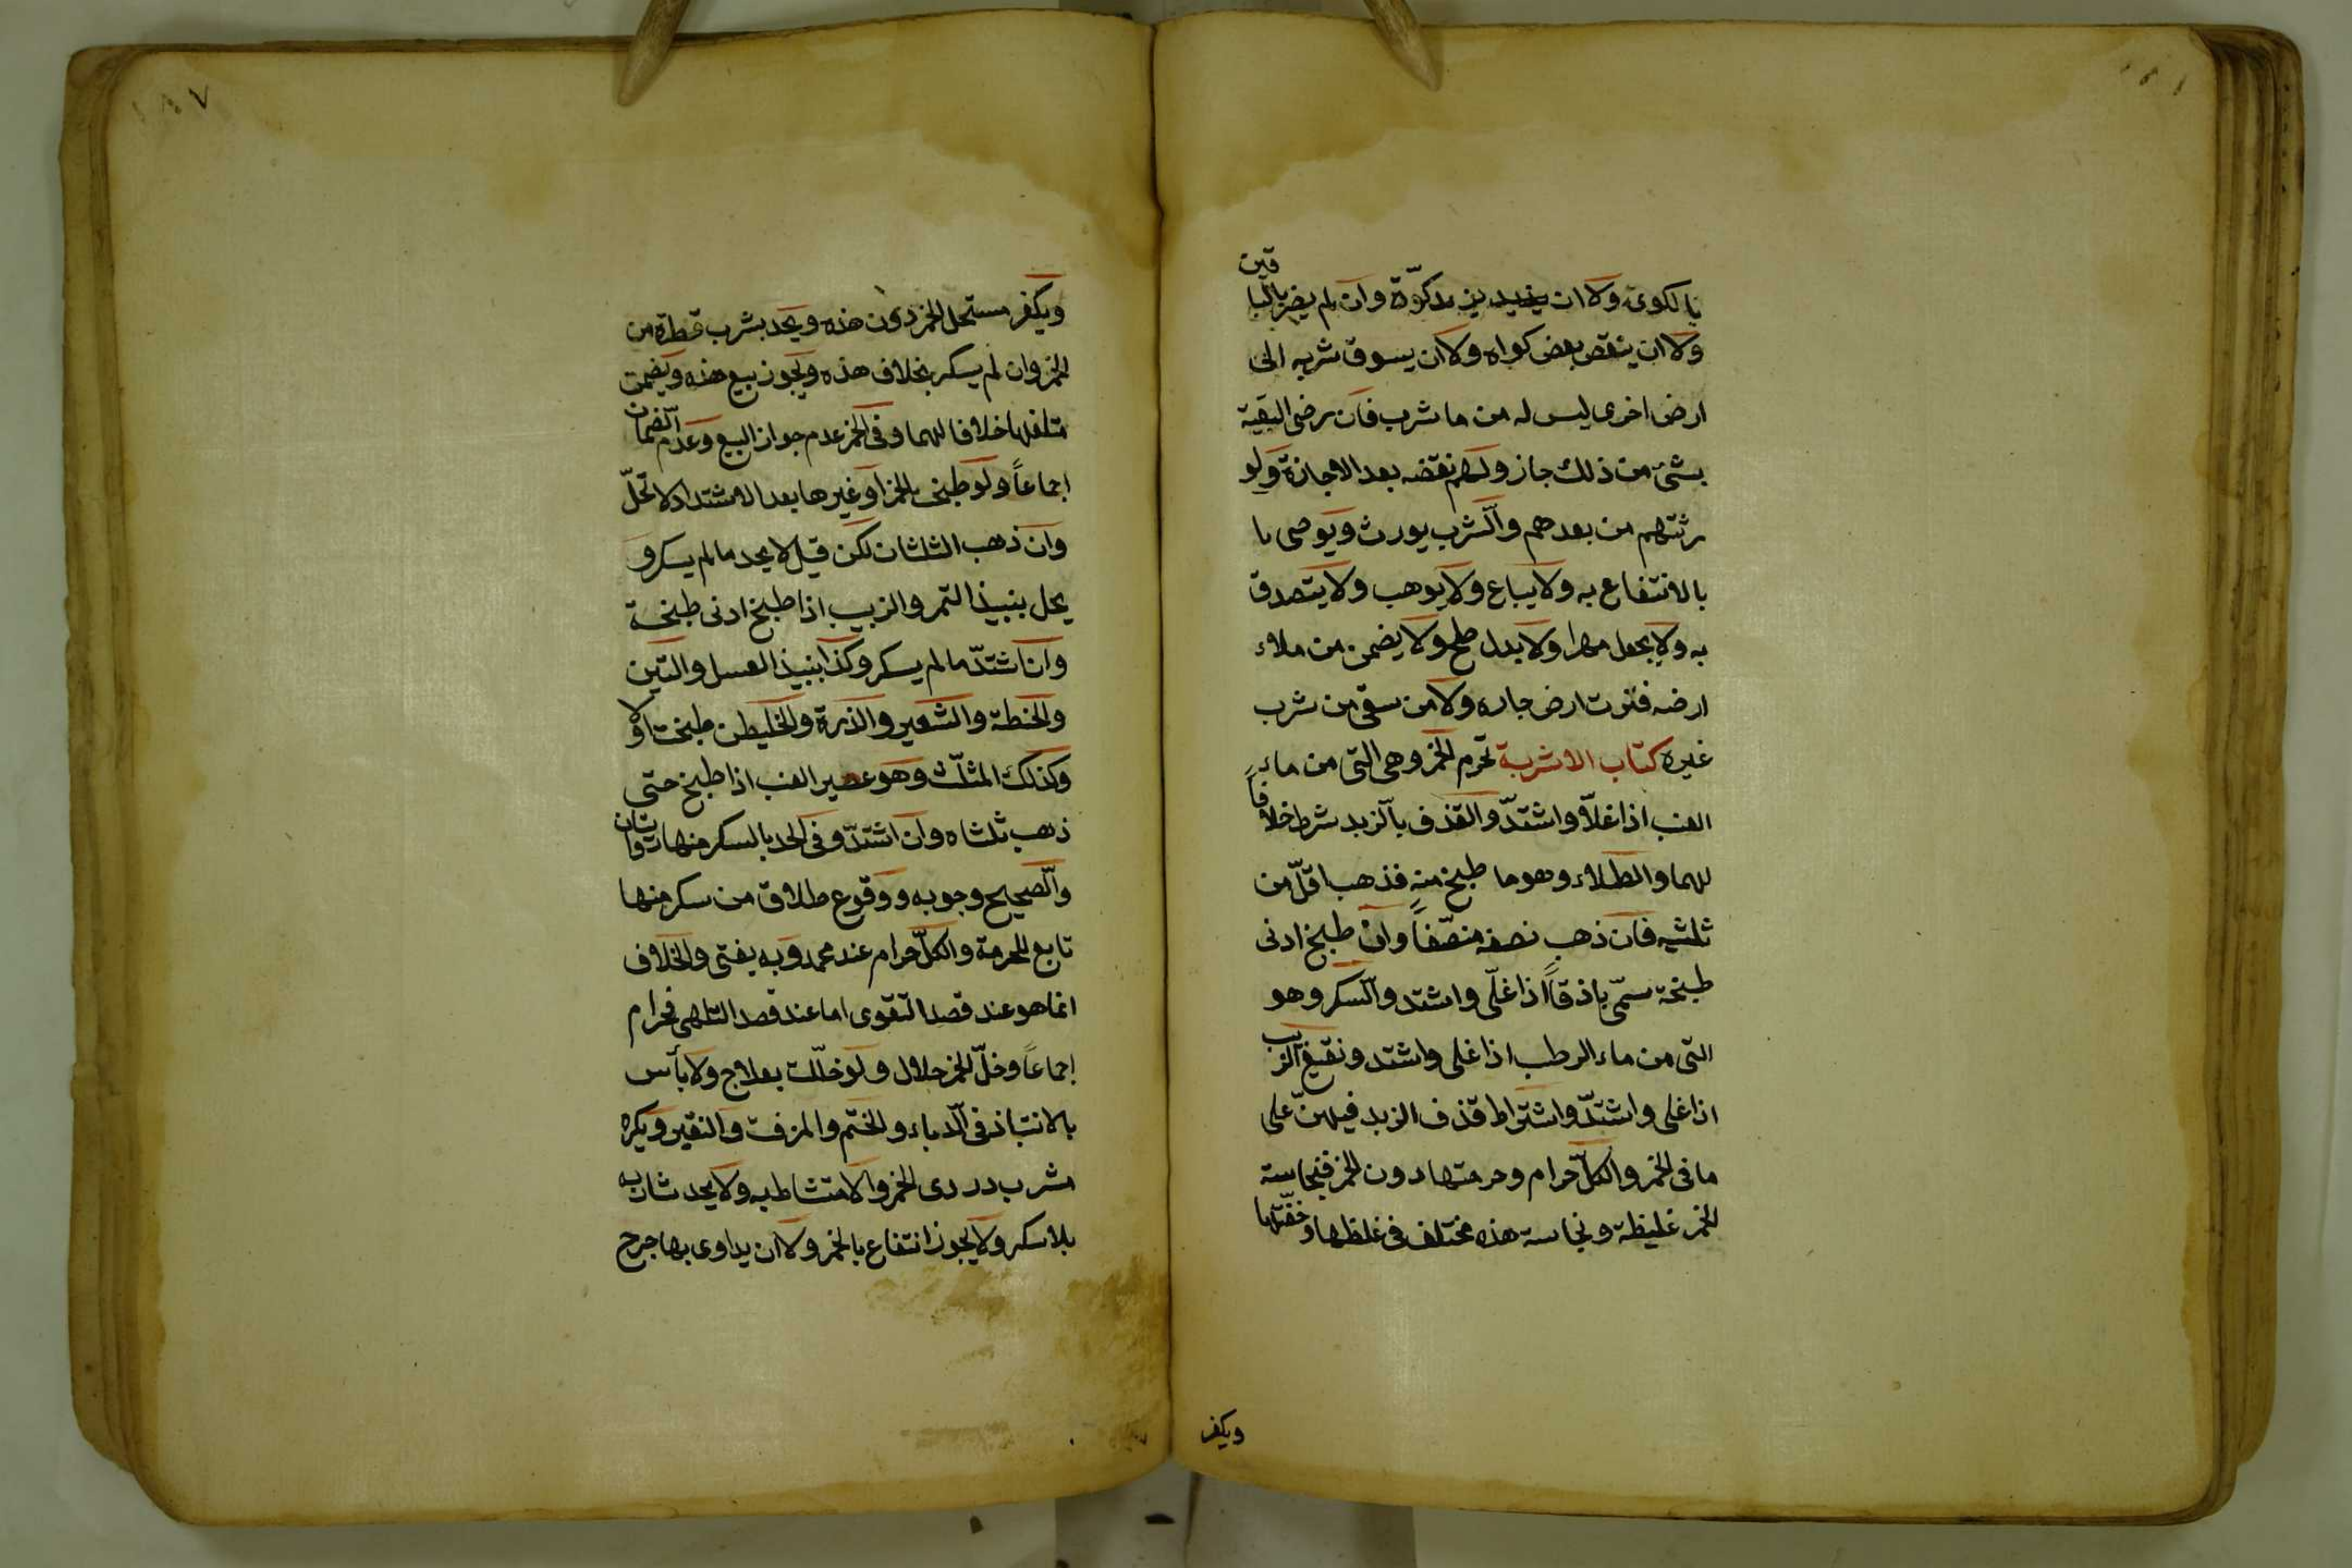 بالكوى ولا ان يزيد كوّة وان لم يضر بالبا
قين
ولا ان ينقص بعض كواه ولا ان يسوق شربه الى
ارض اخرى ليس له من ما شرب فان رضى البقية
بشئ من ذلك جاز ولهم نقضه بعد الاجازة ولو
رثتهم من بعدهم والشرب يورث ويوصى با
بالانتفاع به ولا يباع ولا يوهب ولا يتصدق
به ولا يجعل مهرا ولا بدل صلح ولا يضمن من ملاء
ارضه فنزت ارض جاره ولا من سقى من شرب
غيره كتاب الاشربة تحرم الخمر وهى التى من ماء
العنب اذا غلا واشتدّ والقذف بالزبد شرط خلافاً
لهما والطلاء وهو ما طبخ منه فذهب اقلّ من
ثلثيه فان ذهب نصفه منصّفاً وان طبخ ادنى
طبخة سمّى باذقاً اذا غلّى واشتد والسّكر وهو
التى من ماء الرطب اذا غلى واشتد ونقيع الزبيب
اذا غلى واشتدّ واشتراط قذف الزبد فيهنّ على
ما فى الخمر والكلّ حرام وحرمتها دون الخمر فنجاسة
الخمر غليظة ونجاسة هذه مختلف فى غلظها وخفّتها
ويكفر
١٨٧
ويكفر مستحل الخمر دون هذه ويحد بشرب قطرة من
الخمر وان لم يسكر بخلاف هذه ويجوز بيع هذه ويضمن
متلفها خلافا لهما وفى الخمر عدم جواز البيع وعدم الضمان
إجماعاً ولو طبخ الخمر او غيرها بعد الاشتداد لا تحلّ
وان ذهب الثلثان لكن قيل لا يحد ما لم يسكر و
يحل بنبيذ التمر والزبيب اذا طبخ ادنى طبخة
وان اشتدّ ما لم يسكر وكذا بنبيذ العسل والتين
والحنطة والشعير والذرة والخليطن طبخت او لا
وكذلك المثلّث وهو عصير العنب اذا طبخ حتى
ذهب ثلثاه وان اشتدّ وفى الحد بالسكر منها روايتان
والصّحيح وجوبه ووقوع طلاق من سكر منها
تابع للحرمة والكلّ حرام عند محمد وبه يفتى والخلاف
انما هو عند قصد التقوى اما عند قصد التلهى فحرام
إجماعاً وخلّ الخمر حلال ولو خلّلت بعلاج ولا بأس
بالانتباذ فى الدباء والختم والمزفت والنقير ويكره
شرب دردى الخمر والامتشاط به ولا يحد شاربه
بلا سكر ولا يجوز انتفاع بالخمر ولا ان يداوى بها جرح